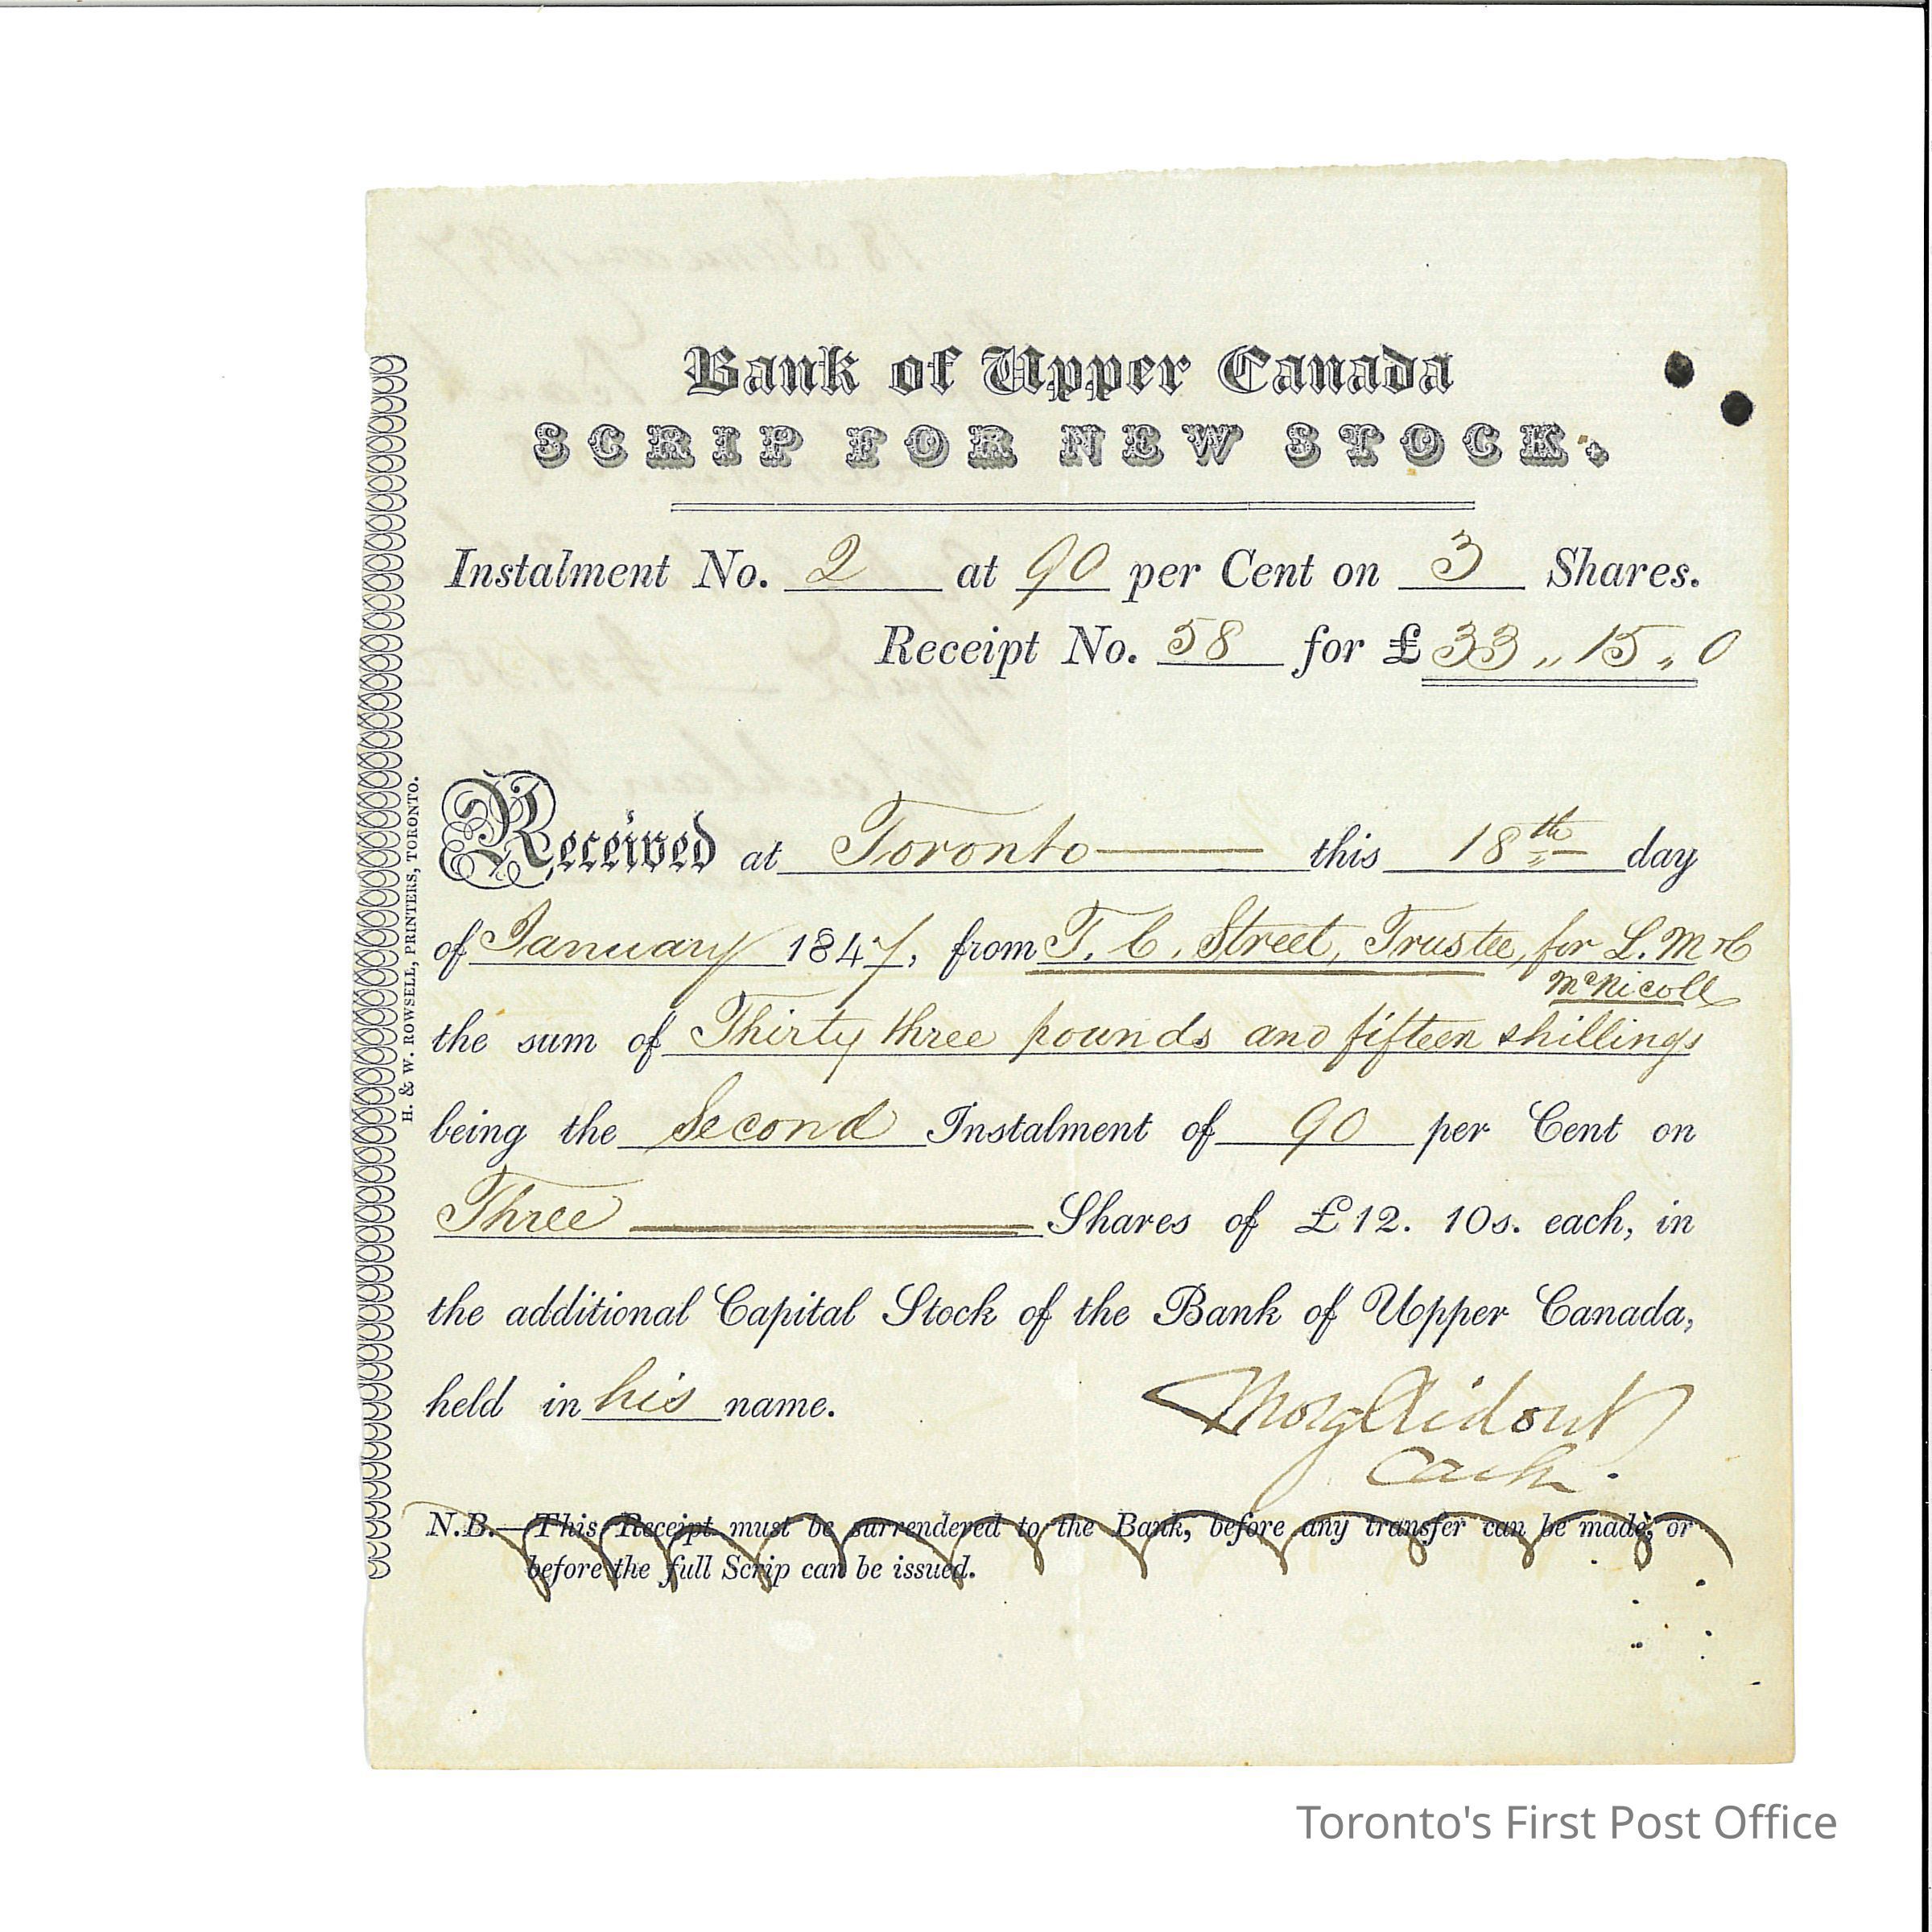 Bank of Upper Canada
SCRIP FOR NEW STOCK.
Instalment No. 2 at 90 per Cent on 3 Shares.
Receipt No. 58 for £33 ,, 15 ,, 0
Received at Toronto this 18th day
of January 1847, from T. C. Street, Trustee, for L. M &
McNicoll
the sum of Thirty three pounds and fifteen shillings
being the Second Instalment of 90 per Cent on
Three Shares of £12. 10s. each, in
the additional Capital Stock of the Bank of Upper Canada,
held in his name.
Thos G Ridout
Cash.
N.B.—This Receipt must be surrendered to the Bank, before any transfer can be made; or
before the full Scrip can be issued.
H. & W. ROWSELL, PRINTERS, TORONTO.
Toronto's First Post Office